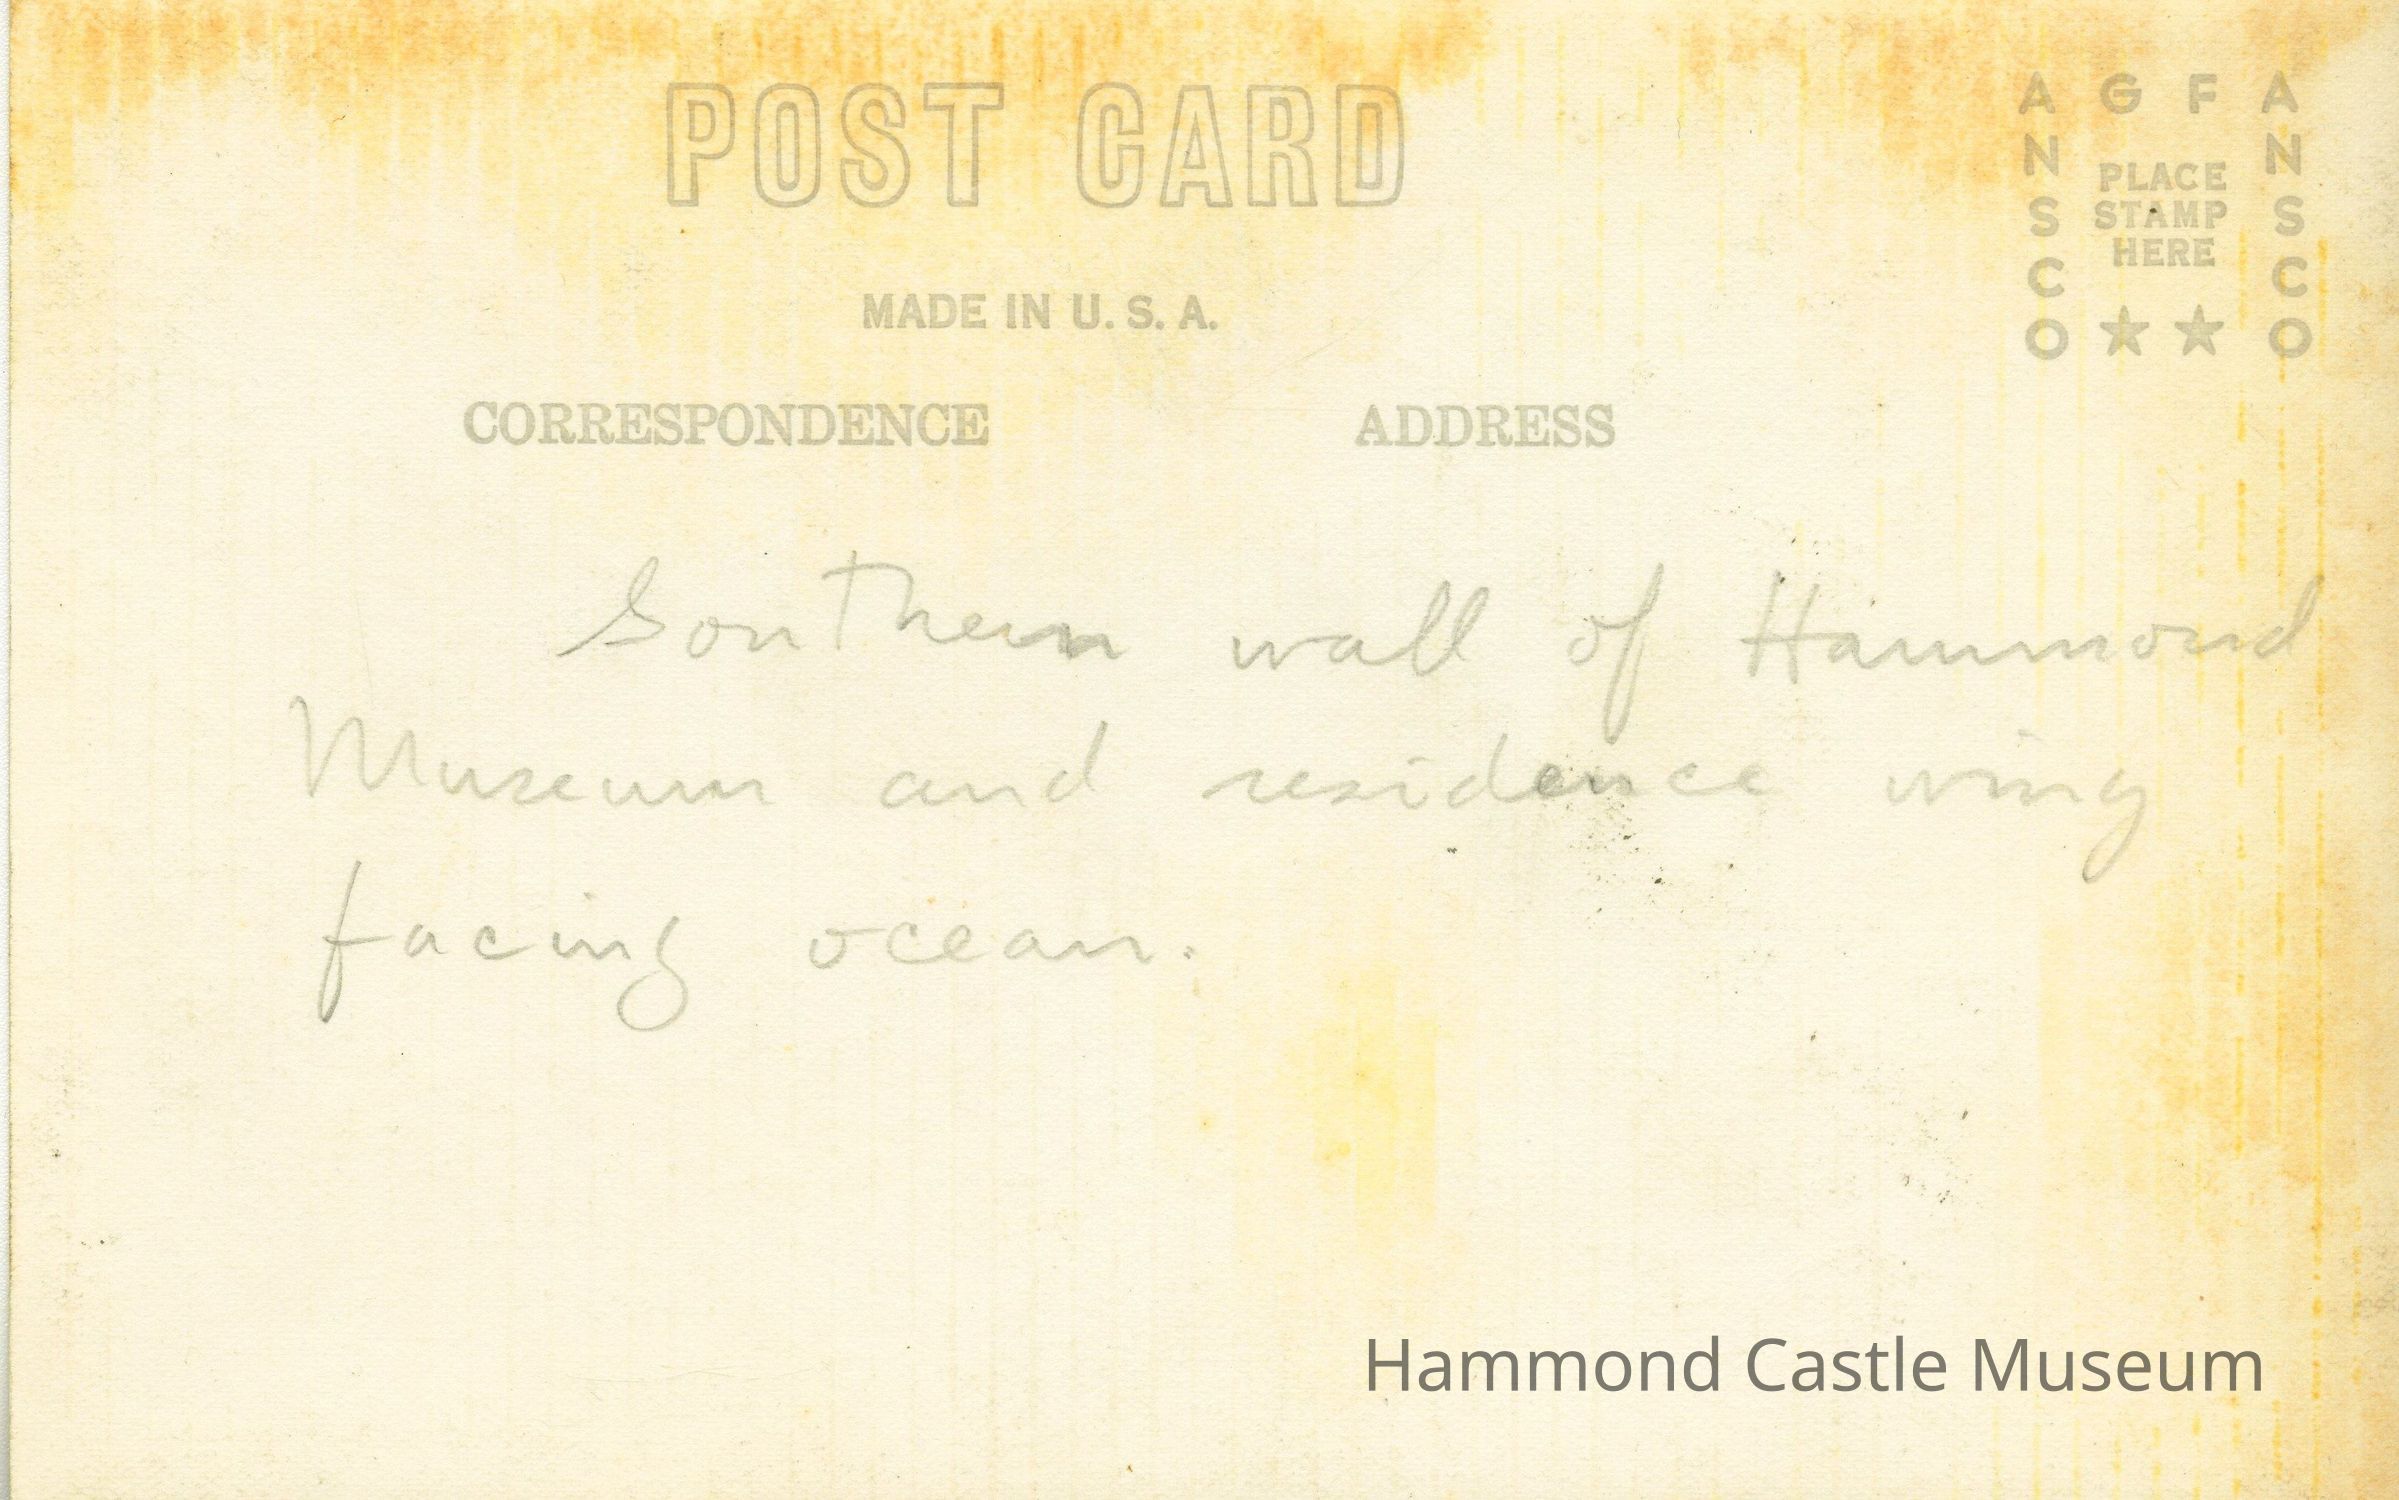 POST CARD
MADE IN U.S.A.
CORRESPONDENCE
ADDRESS
AGFA
ANSCO
ANSCO
PLACE
STAMP
HERE
Southern wall of Hammond
Museum and residence wing
facing ocean.
Hammond Castle Museum